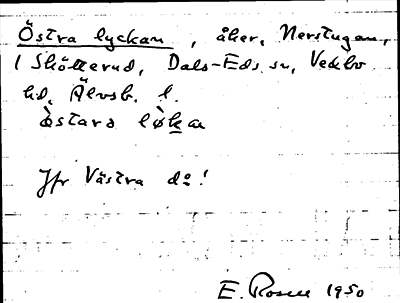 Östra lyckan, åker, Nerstugan,
1 Skötterud, Dals-Eds sn, Vedbo
hd, Älvsb. l.
òstara lø̀kan
Jfr Västra do!
E. Rosell 1950